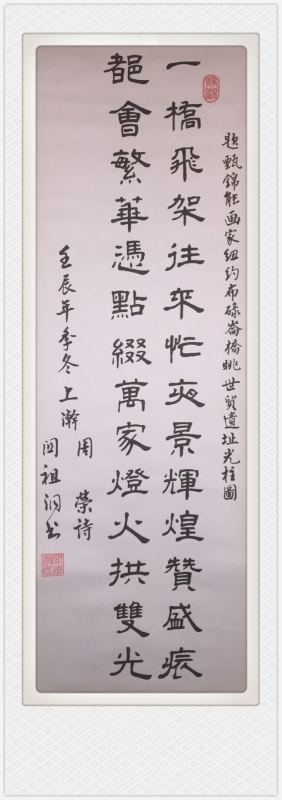 題甄錦能画家紐約布碌崙橋眺世貿遺址光柱圖
一橋飛架往來忙夜景輝煌贊盛
都會繁華憑點綴萬家燈火拱雙光
壬辰年季冬上澣
周榮詩
祖书